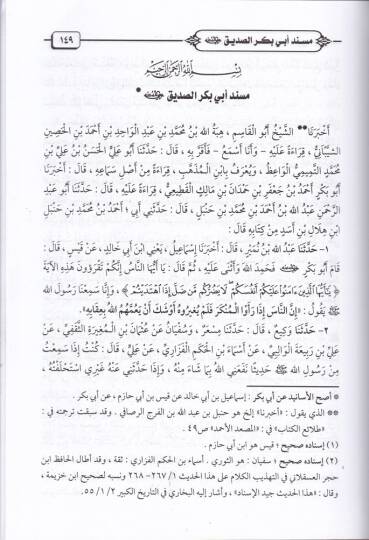 مسند أبي بكر الصديق رضي الله عنه
١٤٩
بسم الله الرحمن الرحيم
مسند أبي بكر الصديق رضي الله عنه *
أَخْبَرَنَا** الشَّيْخُ أَبُو الْقَاسِمِ، هِبَةُ اللهِ بْنُ مُحَمَّدِ بْنِ عَبْدِ الْوَاحِدِ بْنِ أَحْمَدَ بْنِ الْحُصَيْنِ
الشَّيْبَانِيُّ، قِرَاءَةً عَلَيْهِ - وَأَنَا أَسْمَعُ - فَأَقَرَّ بِهِ، قَالَ: حَدَّثَنَا أَبُو عَلِيٍّ الْحَسَنُ بْنُ عَلِيِّ بْنِ
مُحَمَّدٍ التَّمِيمِيُّ الْوَاعِظُ، وَيُعْرَفُ بِابْنِ الْمُذْهِبِ، قِرَاءَةً مِنْ أَصْلِ سَمَاعِهِ، قَالَ: أَخْبَرَنَا
أَبُو بَكْرٍ أَحْمَدُ بْنُ جَعْفَرِ بْنِ حَمْدَانَ بْنِ مَالِكٍ الْقَطِيعِيُّ، قِرَاءَةً عَلَيْهِ، قَالَ: حَدَّثَنَا أَبُو عَبْدِ
الرَّحْمَنِ عَبْدُ اللهِ بْنُ أَحْمَدَ بْنِ مُحَمَّدِ بْنِ حَنْبَلٍ، قَالَ: حَدَّثَنِي أَبِي؛ أَحْمَدُ بْنُ مُحَمَّدِ بْنِ حَنْبَلِ
ابْنِ هِلَالِ بْنِ أَسَدٍ مِنْ كِتَابِهِ قَالَ:
١- حَدَّثَنَا عَبْدُ اللهِ بْنُ نُمَيْرٍ، قَالَ: أَخْبَرَنَا إِسْمَاعِيلُ، يَعْنِي ابْنَ أَبِي خَالِدٍ، عَنْ قَيْسٍ، قَالَ:
قَامَ أَبُو بَكْرٍ رضي الله عنه فَحَمِدَ اللهَ وَأَثْنَى عَلَيْهِ، ثُمَّ قَالَ: يَا أَيُّهَا النَّاسُ إِنَّكُمْ تَقْرَؤُونَ هَذِهِ الْآيَةَ
﴿يَا أَيُّهَا الَّذِينَ آمَنُوا عَلَيْكُمْ أَنْفُسَكُمْ لَا يَضُرُّكُمْ مَنْ ضَلَّ إِذَا اهْتَدَيْتُمْ﴾، وَإِنَّا سَمِعْنَا رَسُولَ اللهِ
ﷺ يَقُولُ: «إِنَّ النَّاسَ إِذَا رَأَوُا الْمُنْكَرَ فَلَمْ يُغَيِّرُوهُ أَوْشَكَ أَنْ يَعُمَّهُمُ اللهُ بِعِقَابِهِ».
٢- حَدَّثَنَا وَكِيعٌ، قَالَ: حَدَّثَنَا مِسْعَرٌ، وَسُفْيَانُ عَنْ عُثْمَانَ بْنِ الْمُغِيرَةِ الثَّقَفِيِّ، عَنْ
عَلِيِّ بْنِ رَبِيعَةَ الْوَالِبِيِّ، عَنْ أَسْمَاءَ بْنِ الْحَكَمِ الْفَزَارِيِّ، عَنْ عَلِيٍّ، قَالَ: كُنْتُ إِذَا سَمِعْتُ
مِنْ رَسُولِ اللهِ ﷺ حَدِيثًا نَفَعَنِي اللهُ بِمَا شَاءَ مِنْهُ، وَإِذَا حَدَّثَنِي عَنْهُ غَيْرِي اسْتَحْلَفْتُهُ،
* أصح الأسانيد عن أبي بكر: إسماعيل بن أبي خالد عن قيس بن أبي حازم، عن أبي بكر.
** الذي يقول: «أخبرنا» إلخ هو حنبل بن عبد الله بن الفرج الرصافي. وقد سبقت ترجمته في:
«طلائع الكتاب» في: «المصعد الأحمد» ص٤٩.
(١) إسناده صحيح؛ قيس هو ابن أبي حازم.
(٢) إسناده صحيح؛ سفيان: هو الثوري. أسماء بن الحكم الفزاري: ثقة، وقد أطال الحافظ ابن
حجر العسقلاني في التهذيب الكلام على هذا الحديث ١/ ٢٦٧- ٢٦٨ ونسبه لصحيح ابن خزيمة،
وقال: «هذا الحديث جيد الإسناد»، وأشار إليه البخاري في التاريخ الكبير ٢/ ١/ ٥٥.